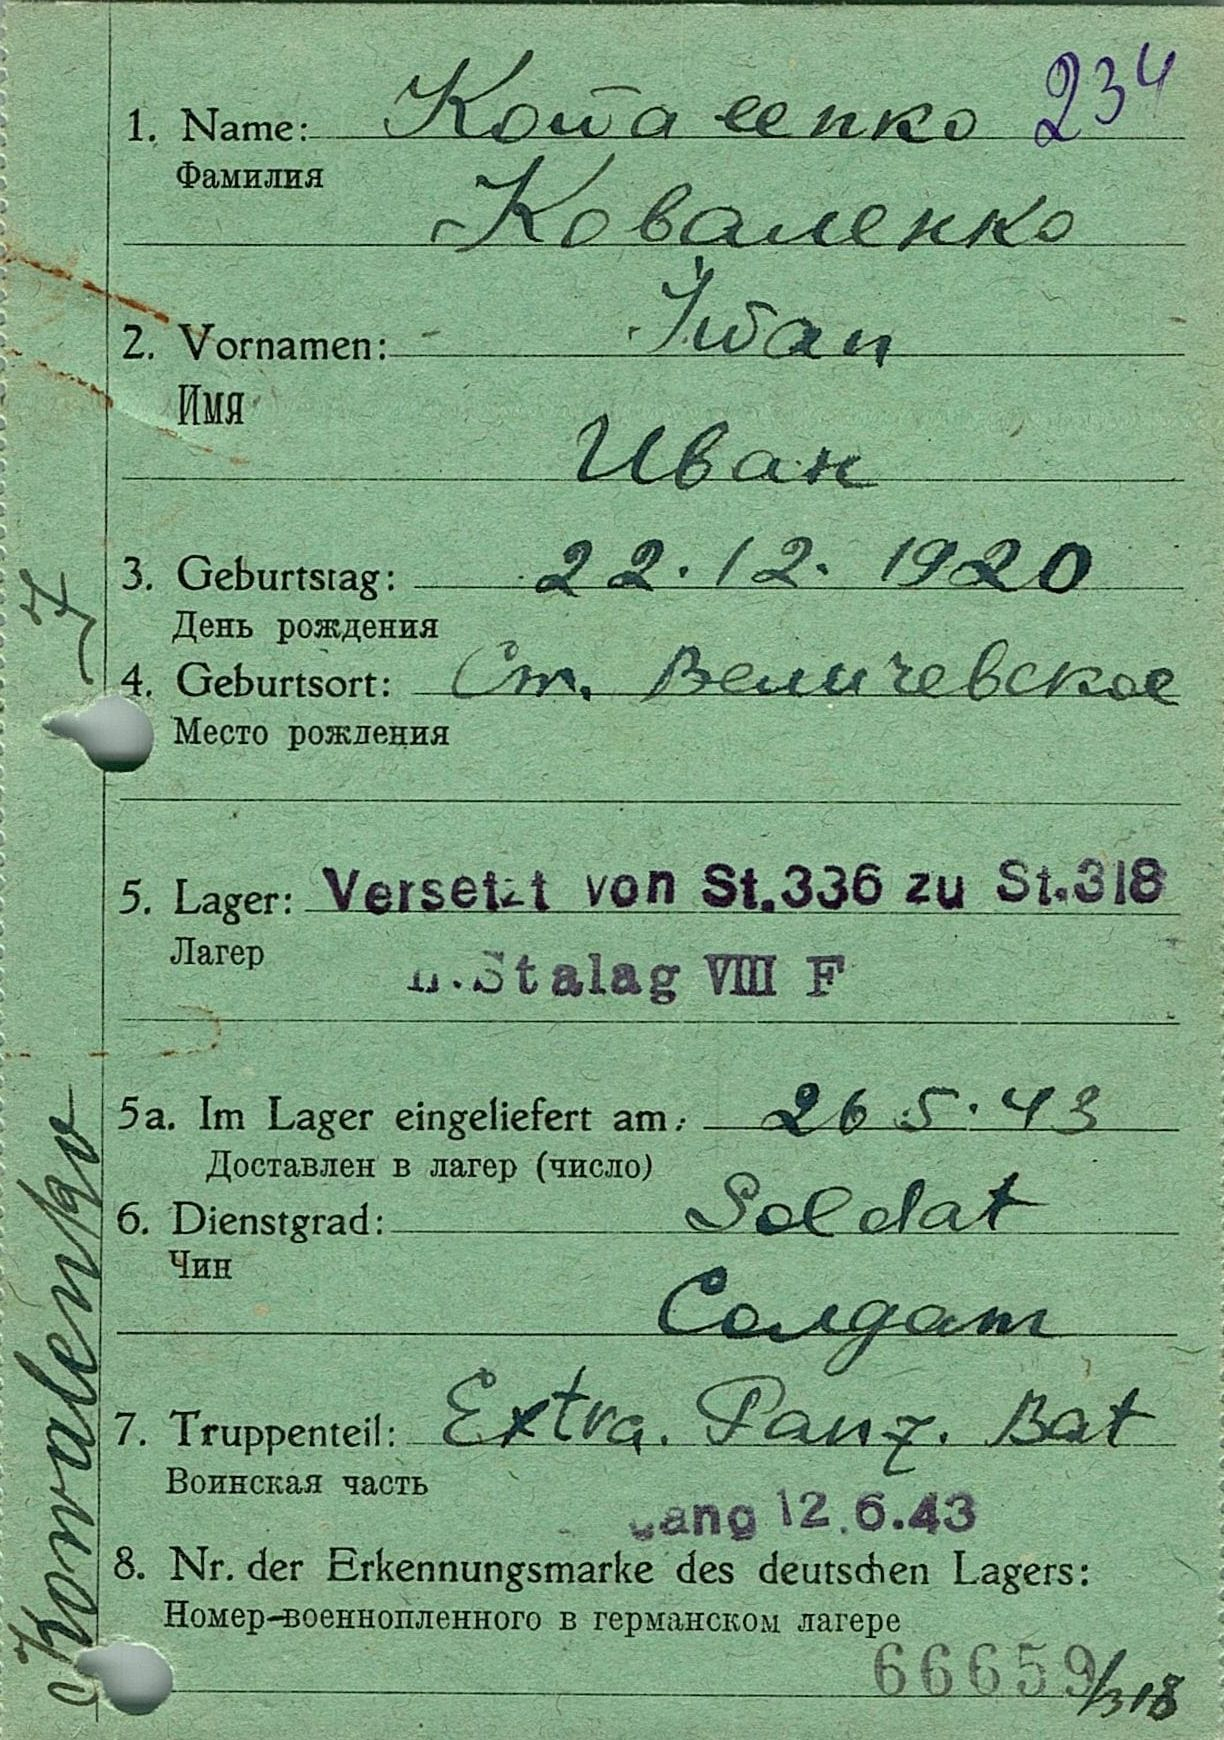 234
1. Name: Котаеенко
Фамилия
Коваленко
2. Vornamen: Iwan
Имя
Иван
3. Geburtstag: 22.12.1920
День рождения
4. Geburtsort: Ст. Величевское
Место рождения
5. Lager: Versetzt von St.336 zu St.318
Лагер
Stalag VIII F
5a. Im Lager eingeliefert am: 26 5.43
Доставлен в лагер (число)
6. Dienstgrad: Soldat
Чин
Солдат
7. Truppenteil: Extra. Panz. Bat
Воинская часть
gang 12.6.43
8. Nr. der Erkennungsmarke des deutschen Lagers:
Номер военнопленного в германском лагере
66659/318
Kowalenko